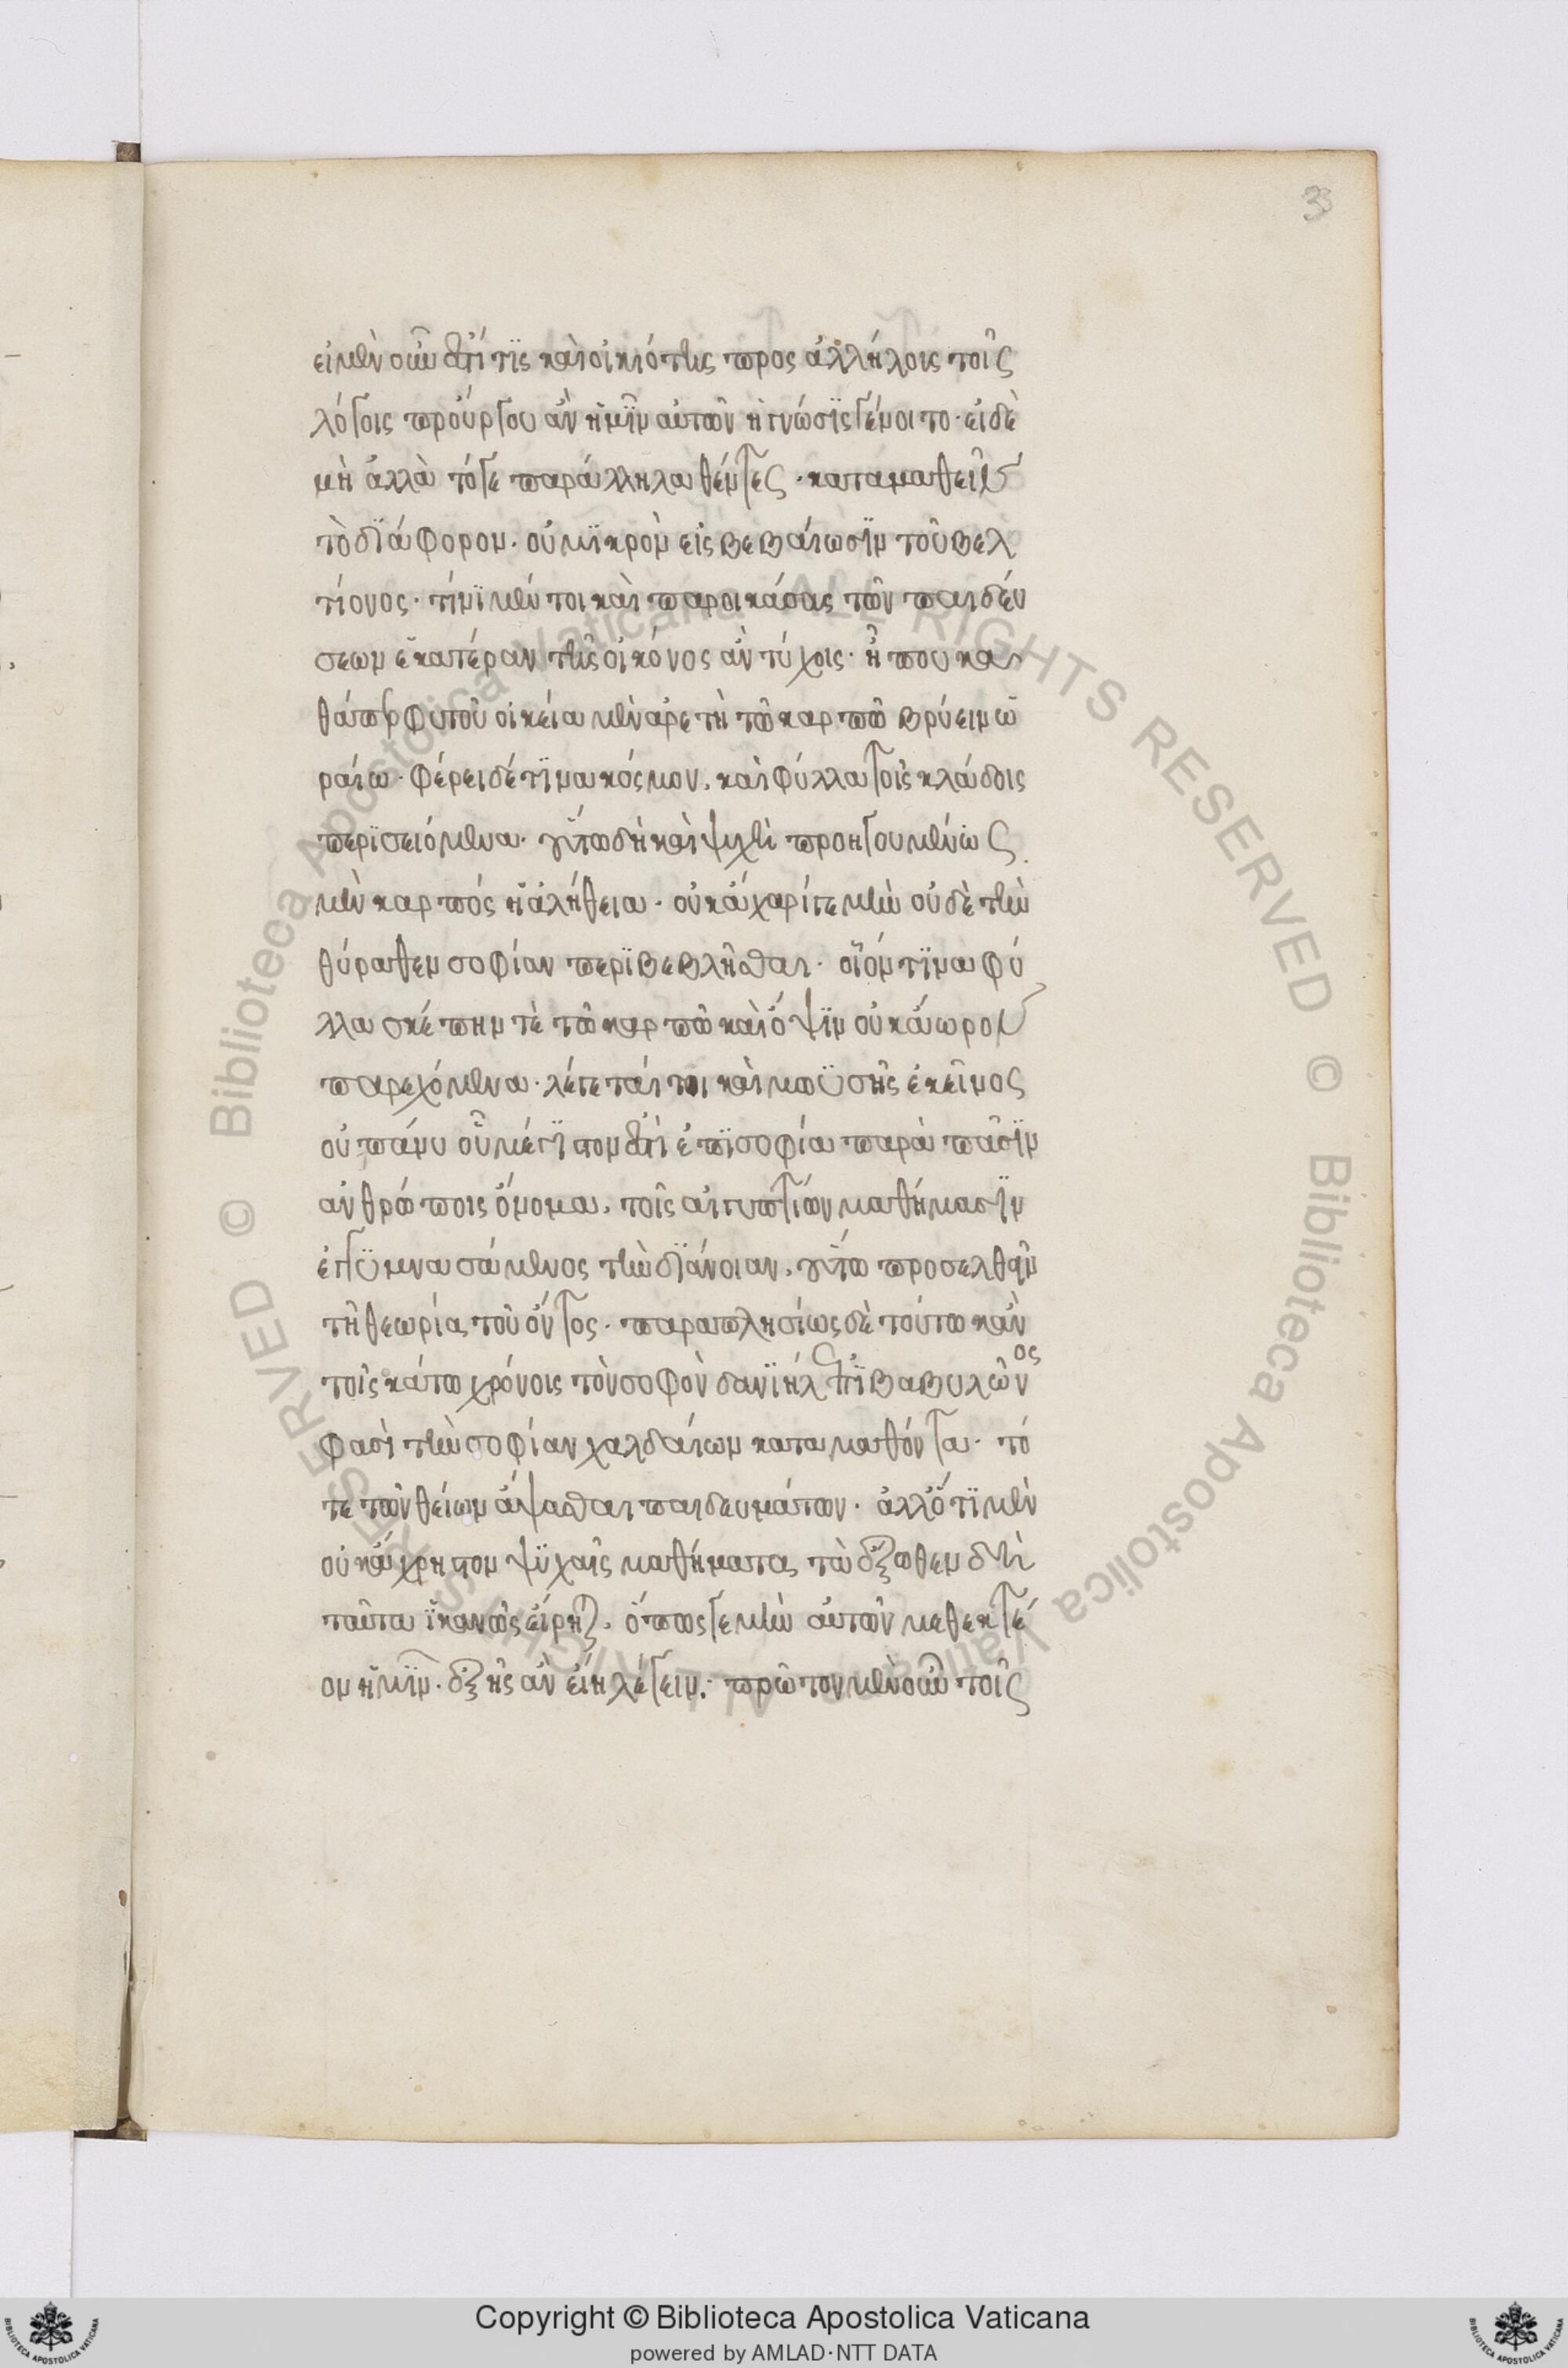 33
εἰ μὲν οὖν ἐστί τις καὶ οἰκιότης προς ἀλλήλοις τοῖς
λόγοις προὔργου ἂν ἡμῖν αὐτῶν ἡ γνῶσις γένοιτο· εἰ δὲ
μὴ ἀλλὰ τό γε παράλληλα θέντες · καταμαθεῖν
τὸ διάφορον· οὐ μικρὸν εἰς βεβαίωσιν τοῦ βελ
τίονος · τίνι μέν τοι καὶ παροικάσας τῶν παιδεύ
σεων ἑκατέραν τῆς οἰκόνος ἂν τύχοις· ἤ που κα
θάπερ φυτοῦ οἰκεία μὲν ἀρετὴ τῶ καρπῶ βρύειν ὡ
ραίω · φέρει δέ τινα κόσμον, καὶ φύλλα τοῖς κλάδοις
περισειόμενα· οὕτω δὴ καὶ ψυχῆ προηγουμένως
μὲν καρπός ἡ ἀλήθεια · οὐκ ἄχαρίγε μὴν οὐδὲ τὴν
θύραθεν σοφίαν περιβεβλῆσθαι · οἷόν τινα φύ
λλα σκέπην τὲ τῶ καρπῶ καὶ ὄψιν οὐκ ἄωρον
παρεχόμενα · λέγεται τοι καὶ μωϋσῆς ἐκεῖνος
οὐ πάνυ οὗ μέγιστον ἐστὶ ἐπι σοφία παρὰ πᾶσιν
ἀνθρώποις ὄνομα, τοῖς αἰγυπτίων μαθήμασιν
ἐγγϋμνασάμενος τὴν διάνοιαν, οὕτω προσελθεῖν
τῆ θεωρία τοῦ ὄντος · παραπλησίως δὲ τούτω κἀν
τοῖς κάτω χρόνοις τὸν σοφὸν δανιήλ ἐπι βαβυλῶνος
φασὶ τὴν σοφίαν χαλδαίων καταμαθόντα · τό
τε τῶν θείων ἅψασθαι παιδευμάτων · ἀλλ' ὅτι μὲν
οὐκ ἄχρηστον ψϋχαῖς μαθήματα τὰ ἔξωθεν δὴ
ταῦτα ἱκανῶς εἴρηται, ὅπως γε μὴν αὐτῶν μεθεκτέ
ον ἡμῖν · ἑξῆς ἂν εἴη λέγειν· πρῶτον μὲν οὖν τοῖς
Biblioteca Apostolica Vaticana ALL RIGHTS RESERVED © Biblioteca Apostolica Vaticana ALL RIGHTS RESERVED ©
Copyright © Biblioteca Apostolica Vaticana
powered by AMLAD·NTT DATA
BIBLIOTECA APOSTOLICA VATICANA
BIBLIOTECA APOSTOLICA VATICANA